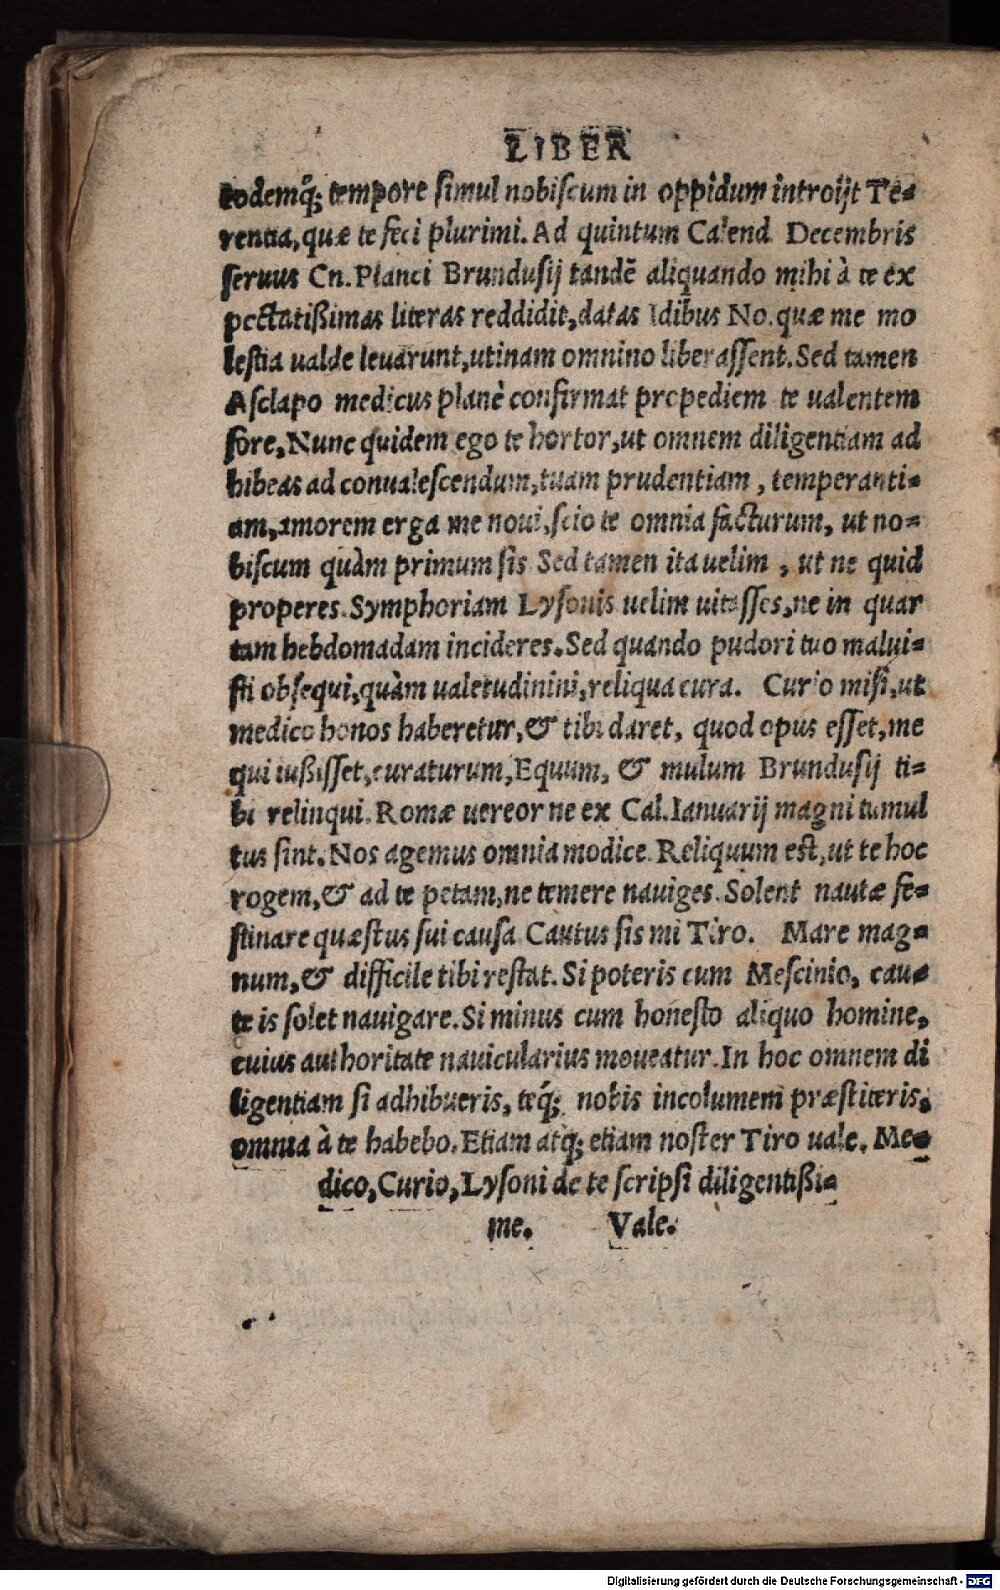 LIBER
eodemq́; tempore simul nobiscum in oppidum introijt Te-
rentia, quæ te feci plurimi. Ad quintum Calend Decembris
seruus Cn. Planci Brundusij tandē aliquando mihi à te ex
pectatißimas literas reddidit, datas Idibus No. quæ me mo
lestia ualde leuarunt, utinam omnino liberassent. Sed tamen
Asclapo medicus planè confirmat propediem te ualentem
fore, Nunc quidem ego te hortor, ut omnem diligentiam ad
hibeas ad conualescendum, tuam prudentiam, temperanti-
am, amorem erga me noui, scio te omnia facturum, ut no-
biscum quàm primum sis Sed tamen ita uelim, ut ne quid
properes. Symphoriam Lysonis uelim uitasses, ne in quar
tam hebdomadam incideres. Sed quando pudori tuo malui-
sti obsequi, quàm ualetudinini, reliqua cura. Curio misi, ut
medico honos haberetur, & tibi daret, quod opus esset, me
qui iußisset, curaturum, Equum, & mulum Brundusij ti-
bi relinqui. Romæ uereor ne ex Cal. Ianuarij magni tumul
tus sint. Nos agemus omnia modice. Reliquum est, ut te hoc
rogem, & ad te petam, ne temere nauiges. Solent nautæ fe-
stinare quæstus sui causa. Cautus sis mi Tiro. Mare mag-
num, & difficile tibi restat. Si poteris cum Mescinio, cau-
te is solet nauigare. Si minus cum honesto aliquo homine,
cuius authoritate nauicularius moueatur. In hoc omnem di
ligentiam si adhibueris, teq́; nobis incolumem præstiteris,
omnia à te habebo. Etiam atq; etiam noster Tiro uale. Me-
dico, Curio, Lysoni de te scripsi diligentißi-
me. Vale.
Digitalisierung gefördert durch die Deutsche Forschungsgemeinschaft - DFG